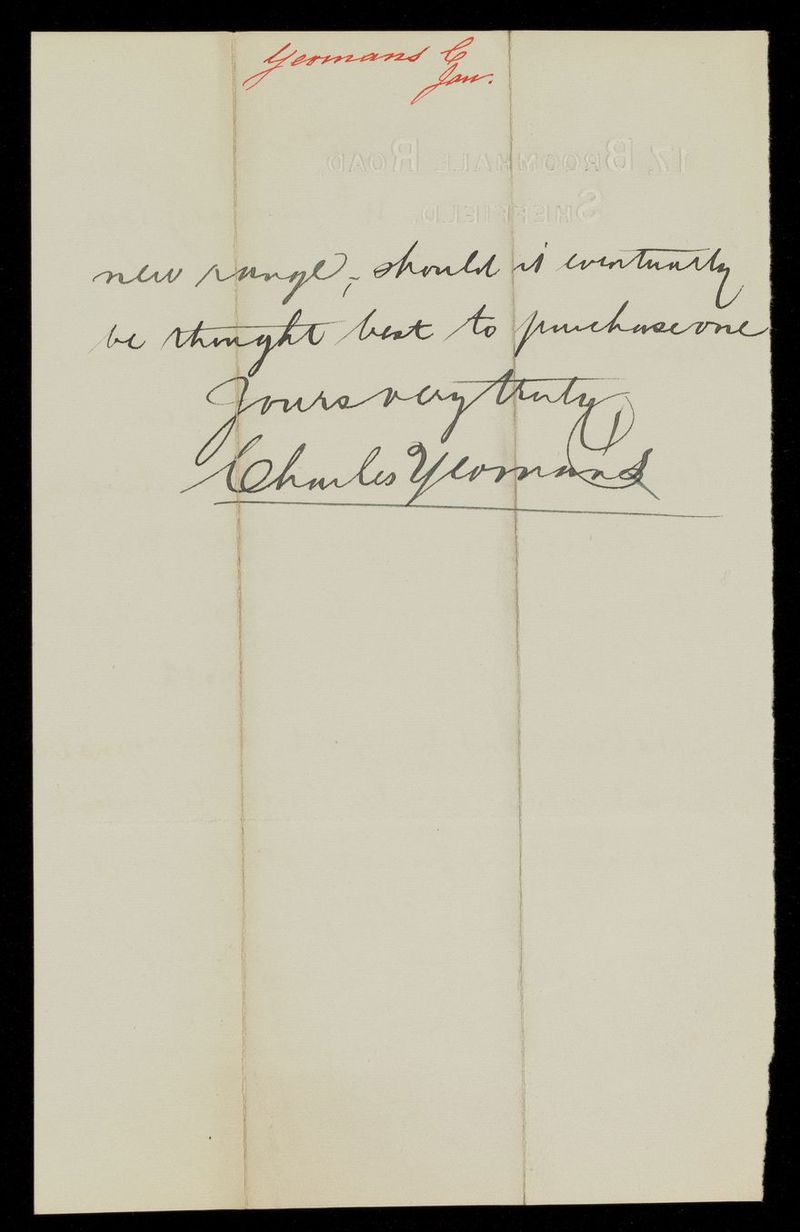 Yeomans C
Jan.
17, BROOMHALL ROAD,
SHEFFIELD.
new range, should it eventually
be thought best to purchase one
Yours very truly
Charles Yeomans